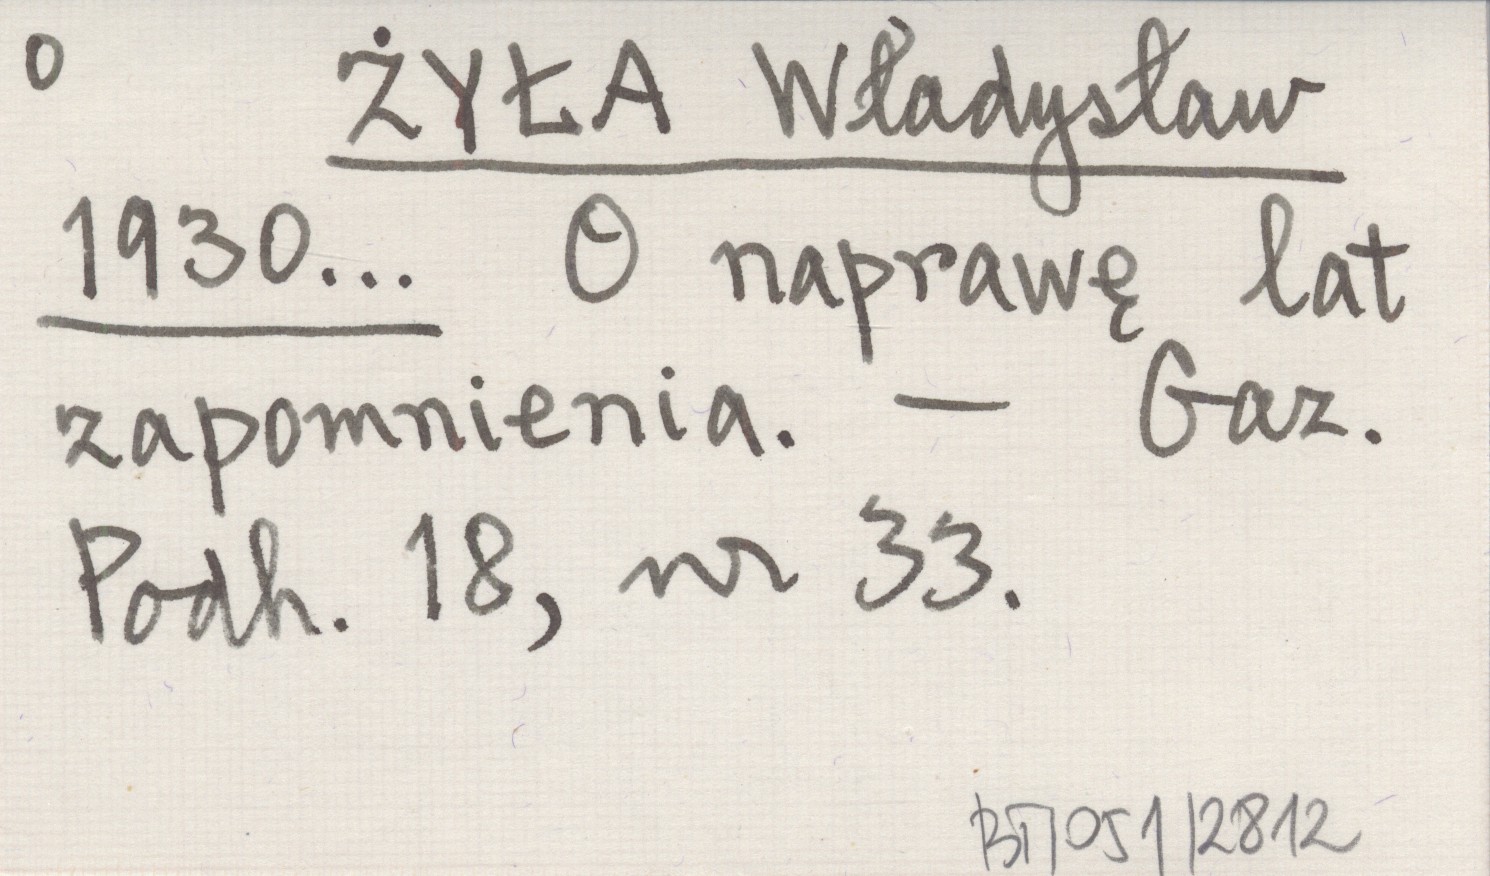 O ŻYŁA Władysław
1930... O naprawę lat
zapomnienia. — Gaz.
Podh. 18, nr 33.
BT/051/2812